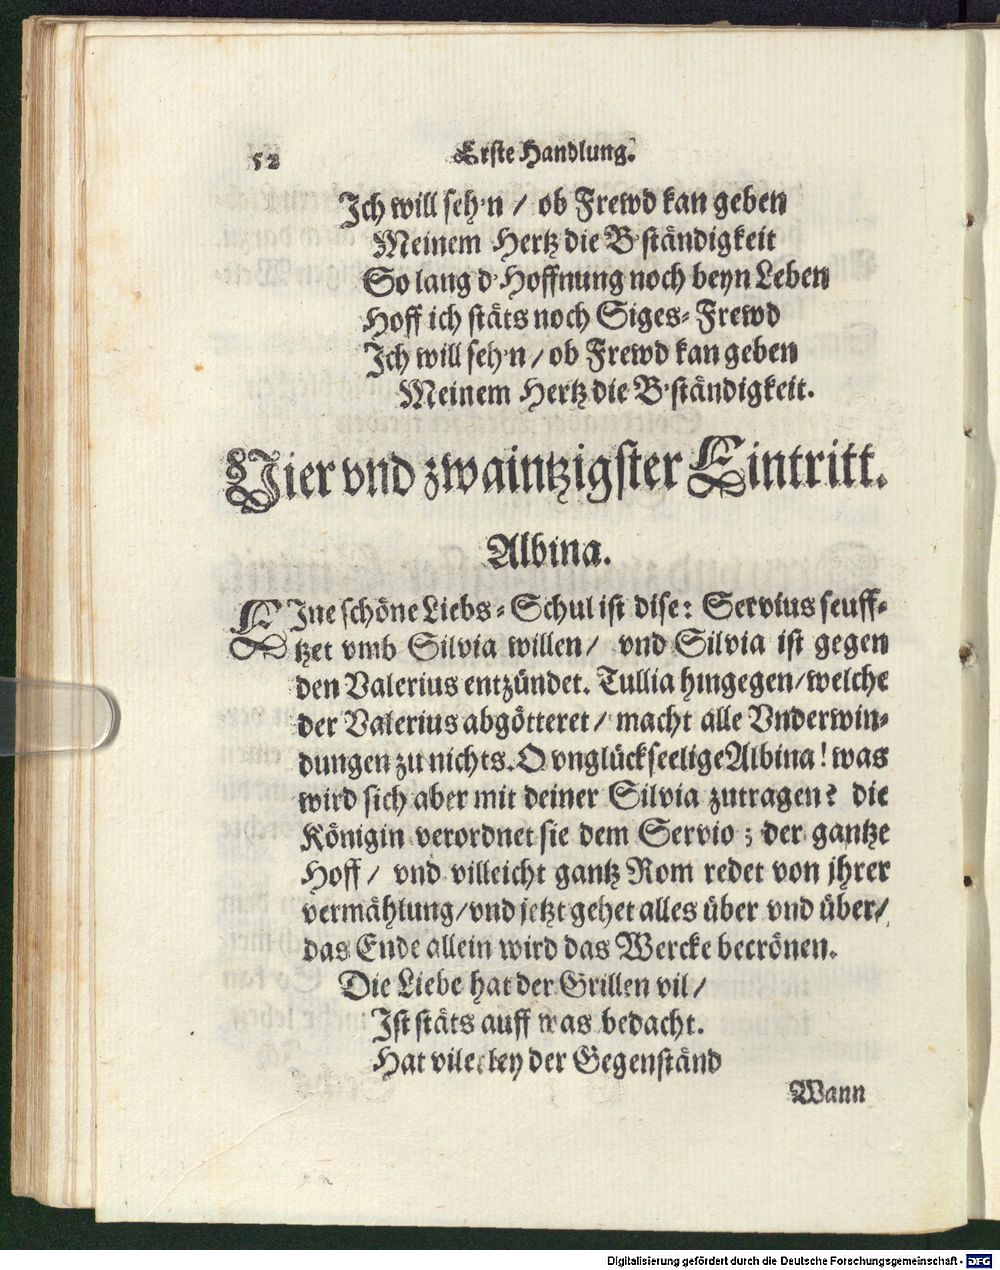 52 Erste Handlung.
Ich will seh'n / ob Frewd kan geben
Meinem Hertz die B'ständigkeit
So lang d' Hoffnung noch beyn Leben
Hoff ich stäts noch Siges- Frewd
Ich will seh'n / ob Frewd kan geben
Meinem Hertz die B'ständigkeit.
Vier vnd zwaintzigster Eintritt.
Albina.
EIne schöne Liebs- Schul ist dise: Servius seuff-
tzet vmb Silvia willen / vnd Silvia ist gegen
den Valerius entzündet. Tullia hingegen / welche
der Valerius abgötteret / macht alle Vnderwin-
dungen zu nichts. O vnglückseelige Albina! was
wird sich aber mit deiner Silvia zutragen? die
Königin verordnet sie dem Servio; der gantze
Hoff / vnd villeicht gantz Rom redet von jhrer
vermählung / vnd jetzt gehet alles über vnd über /
das Ende allein wird das Wercke becrönen.
Die Liebe hat der Grillen vil /
Ist stäts auff was bedacht.
Hat vilerley der Gegenständ
Wann
Digitalisierung gefördert durch die Deutsche Forschungsgemeinschaft - DFG